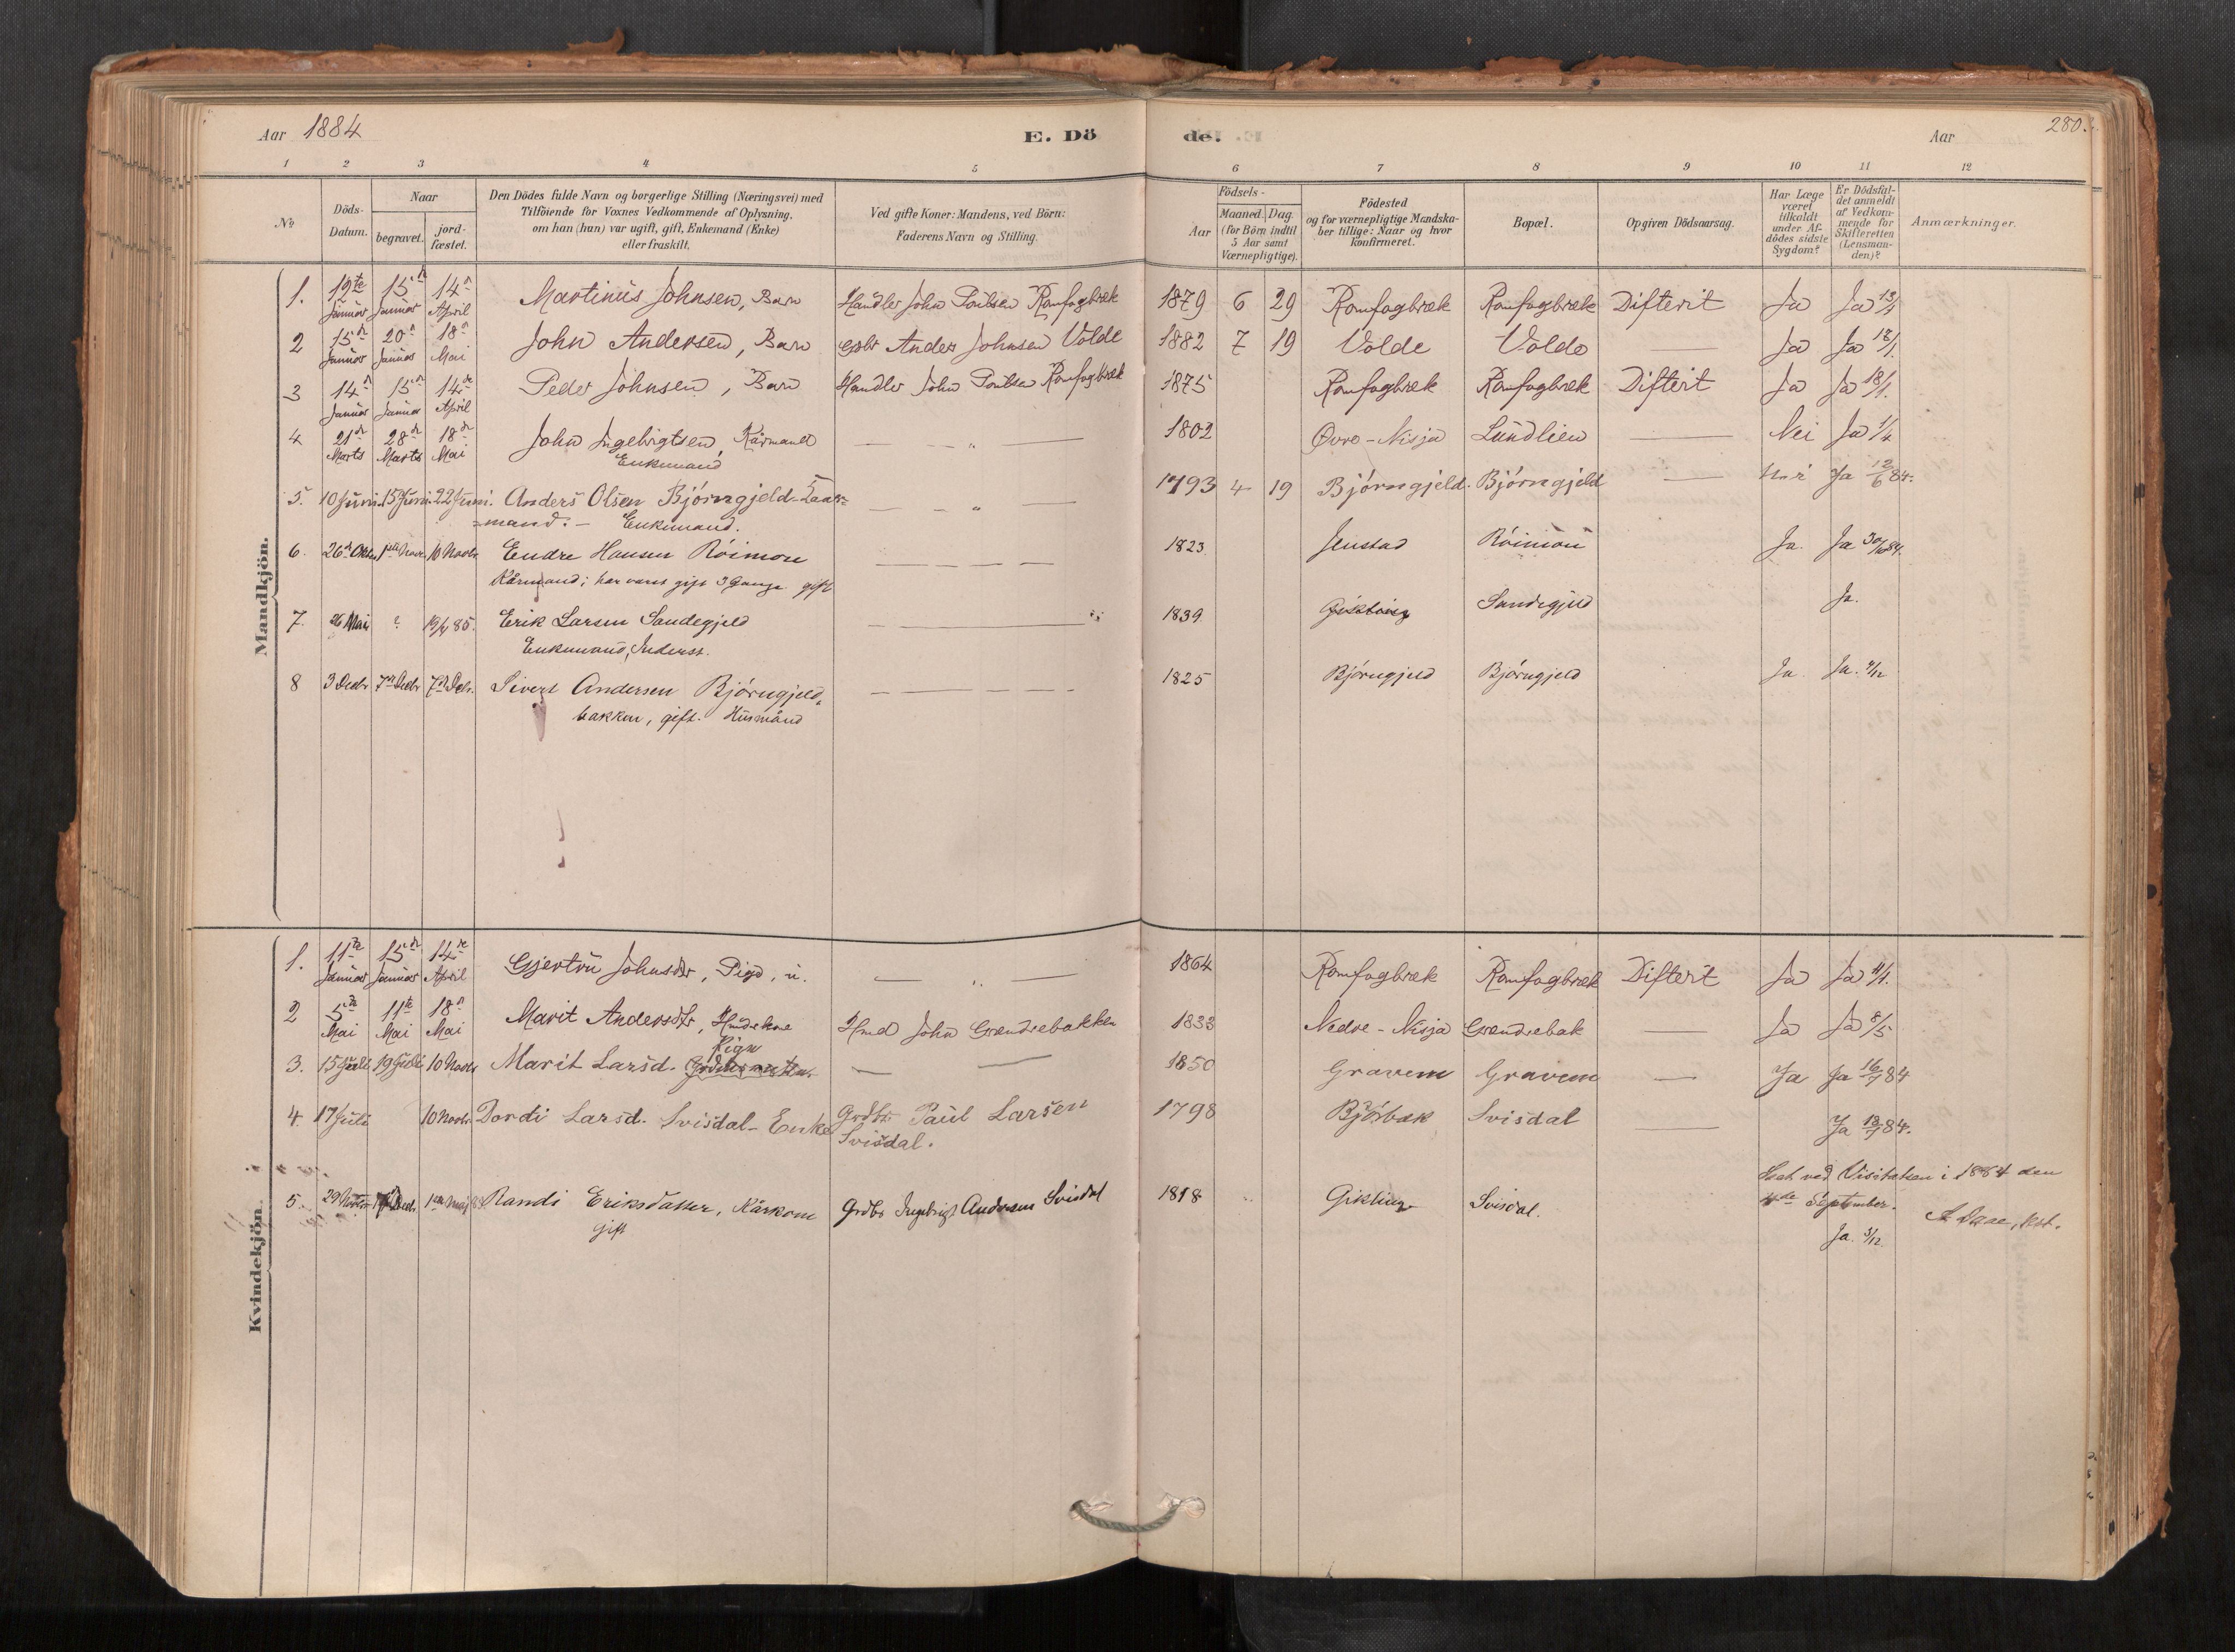 Aar 1884
E. Dö
de.
Aar
280.
1 2 3 4 5 6 7 8 9 10 11 12
No
Döds-Datum.
Naar
begravet.
jord-fæstet.
Den Dödes fulde Navn og borgerlige Stilling (Næringsvei) med
Tilföiende for Voxnes Vedkommende af Oplysning,
om han (hun) var ugift, gift, Enkemand (Enke)
eller fraskilt.
Ved gifte Koner: Mandens, ved Börn:
Faderens Navn og Stilling.
Födsels-
Aar
Maaned. Dag.
(for Börn indtil
5 Aar samt
Værnepligtige).
Födested
og for værnepligtige Mandska-
ber tillige: Naar og hvor
konfirmeret.
Bopæl.
Opgiven Dödsaarsag.
Har Læge
været
tilkaldt
under Af-
dödes sidste
Sygdom?
Er Dödsfal-
det anmeldt
af Vedkom-
mende for
Skifteretten
(Lensman-
den)?
Anmærkninger.
Mandkjön.
1. 12te Januar 15de Januar 14de April Martinus Johnsen, Barn Handler John Poulsen Romfogbræk 1879 6 29 Romfogbræk Romfogbræk Difterit Ja Ja 13/1
2 15de Januar 20de Januar 18de Mai John Andersen, Barn Gdbr Anders Johnsen Volde 1882 7 19 Volde Volde — Ja Ja 18/1.
3 14de Januar 15de Januar 14de April Peder Johnsen, Barn Handler John Poulsen Romfogbræk 1875 Romfogbræk Romfogbræk Difterit Ja Ja 18/1.
4 21de Marts 28de Marts 18de Mai John Ingebrigtsen, Kårmand — „ — 1802 Øvre-Nisja Lundlien — Nei Ja 1/4
Enkemand
5. 10 Juni. 15 Juni. 22 Juni. Anders Olsen Bjørngjeld-Kaar= — „ — 1793 4 19 Bjørngjeld. Bjørngjeld — Nei Ja 12/6 84.
=mand. - Enkemand.
6. 26de Oktbr 1ste Novbr. 10 Novbr. Endre Hansen Röimon — — — 1823 Jenstad Röimon Ja. Ja 30/10 84.
Kårmand; har været gift 3 Gange gift
7. 26 Mai ? 19/4 85. Erik Larsen Sandegjeld — 1839. Gikling Sandegjeld Ja.
Enkemand, Inderst.
8 3 Decbr 7de Decbr 7de Decbr. Sivert Andersen Bjørngjeld= — — — 1825 Bjørngjeld Bjørngjeld Ja. Ja. 4/12
bakken, gift. Husmand
Kvindekjön.
1. 11te Januar 15de Januar 14de April Gjertru Johnsdtr, Pige, u. — „ — 1864 Romfogbræk Romfogbræk Difterit Ja Ja 11/1.
2 5te Mai 11te Mai 18de Mai Marit Andersdtr, Hmdskone Hmd John Grændsebakken 1833 Nedre-Nisja Grændsebak — Ja Ja 8/5
Pige
3. 15 Juli 19 Juli 10 Novbr Marit Larsd. — — 1850 Gravem Gravem — Ja Ja 16/7 84
4. 17 Juli 10 Novbr. Dordi Larsd. Svisdal- Enke Grdbr Paul Larsen 1798 Bjørbæk Svisdal — Ja 18/7 84.
Svisdal.
Seet ved Visitatsen i 1884 den
September.
A. Daae, kst.
5. 29 Novbr 7de Decbr 1ste Maj Randi Eriksdatter, Kårkone Grdbr Ingebrigt Andersen Svisdal 1818 Gikling Svisdal. Ja. 3/12.
gift